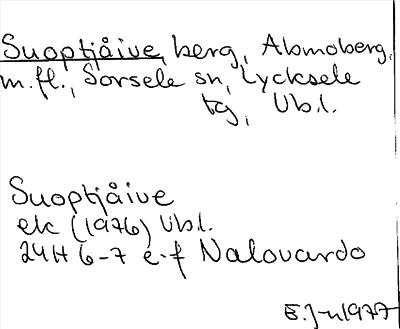 Suoptjåive, berg, Abmoberg,
m.fl., Sorsele sn, Lycksele
tg, Vb.l.
Suoptjåive
ek (1976) Vbl.
24H 6-7 e-f Nalovardo
E.J-n 1977